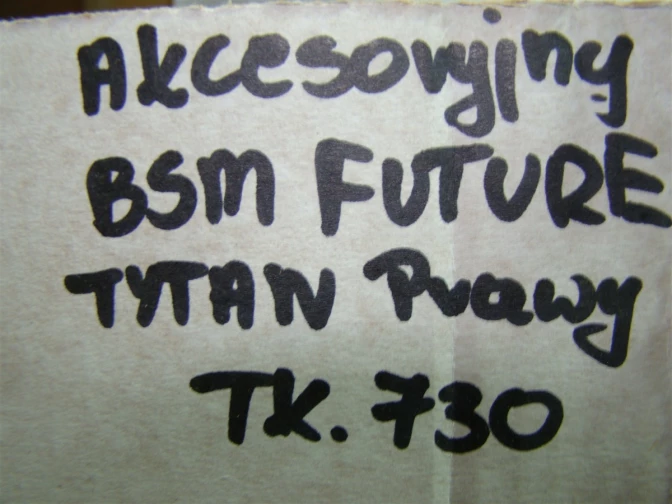 Akcesoryjny
BSM FUTURE
TYTAN Prawy
TK. 730